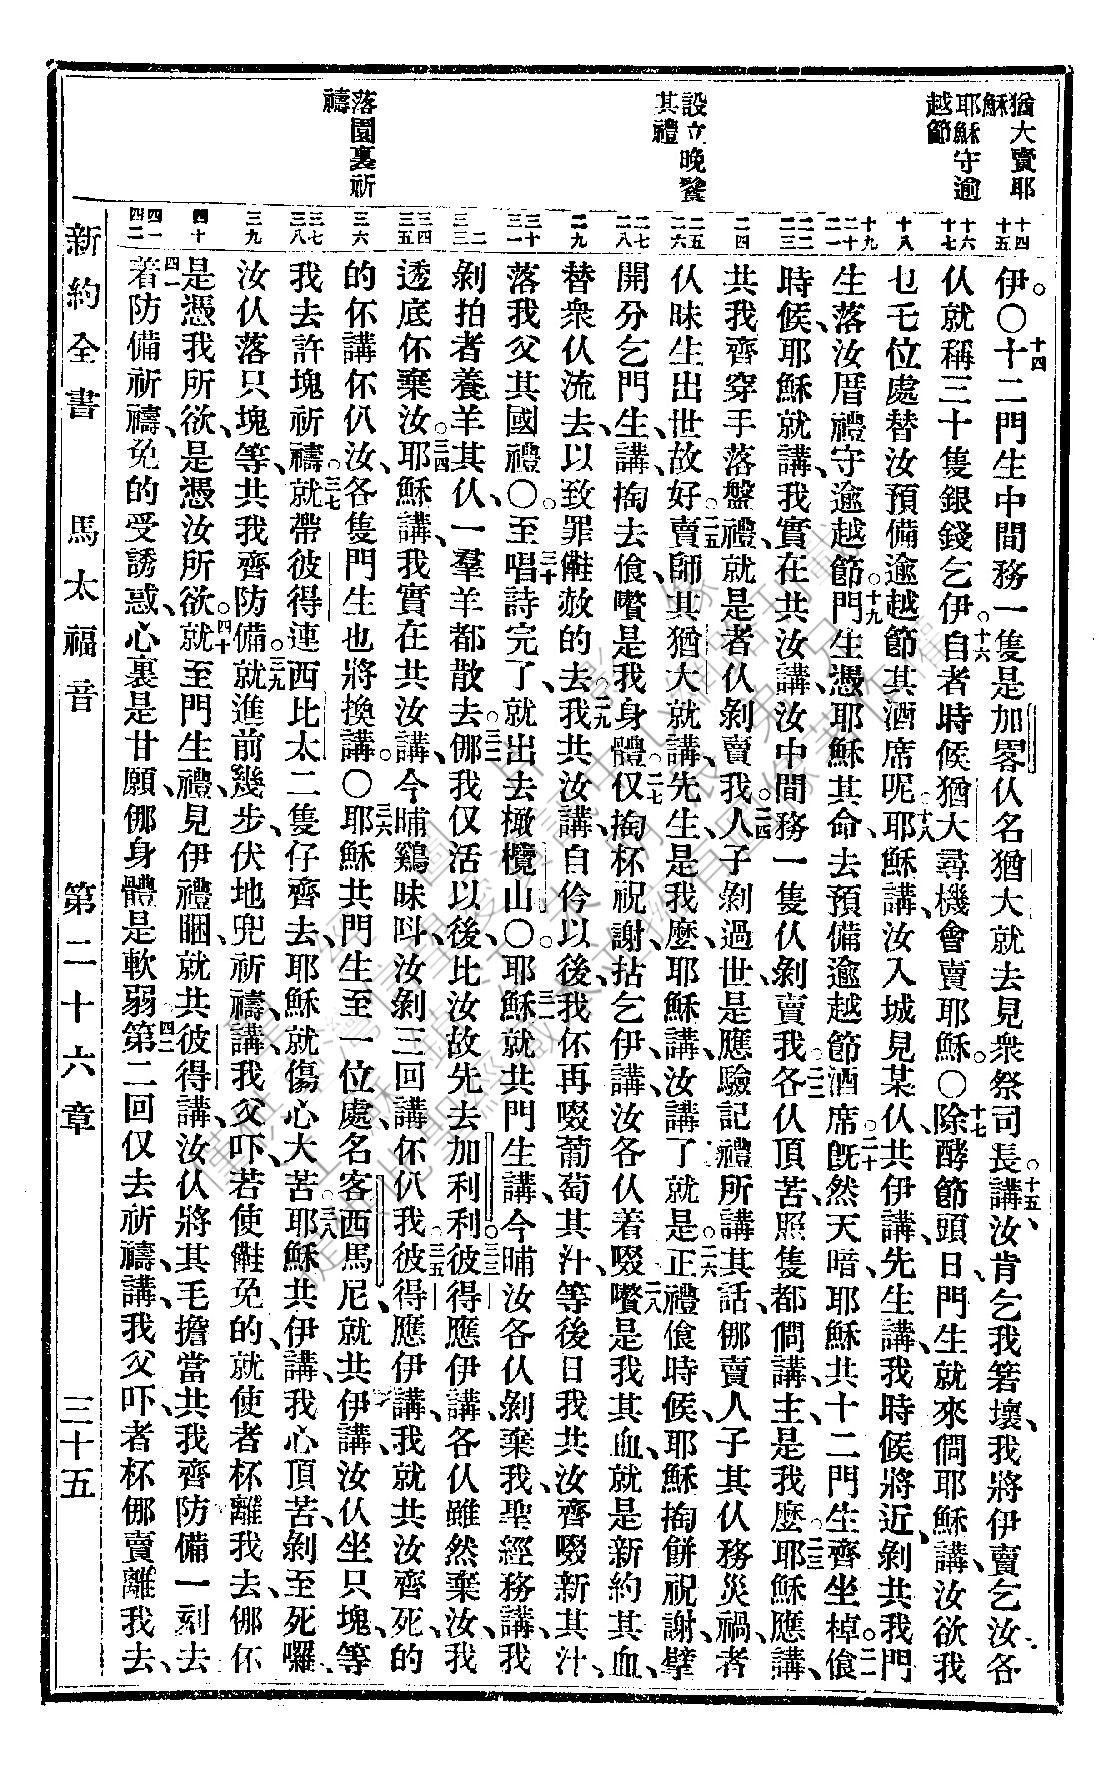 猶大賣耶穌
耶穌守逾越節
設立晚餐其禮
落園裏祈禱
十四 十五
十六 十七
十八
十九 二十 二一
二二 二三
二四
二五 二六
二七 二八
二九
三十 三一
三二 三三
三四 三五
三六
三七 三八
三九
四十
四一 四二
伊。〇十四十二門生中間務一隻是加畧仈名猶大就去見衆祭司長講、十五汝肯乞我箬壞、我將伊賣乞汝各
仈就稱三十隻銀錢乞伊。十六自者時候猶大尋機會賣耶穌。〇十七除酵節頭日、門生就來㑚耶穌講、汝欲我
乜乇位處替汝預備逾越節其酒席呢、十八耶穌講、汝入城見某仈、共伊講、先生講、我時候將近、剝共我門
生落汝厝禮守逾越節。十九門生憑耶穌其命、去預備逾越節酒席。二十旣然天暗、耶穌共十二門生齊坐棹。二一食
時候、耶穌就講、我實在共汝講、汝中間務一隻仈、剝賣我。二二各仈頂苦、照隻都㑚講、主、是我麽。二三耶穌應講、
共我齊穿手落盤禮、就是者仈剝賣我。二四人子剝過世、是應驗記禮所講其話、㑚賣人子其仈務災禍、者
仈昧生出世故好。二五賣師其猶大就講、先生、是我麽、耶穌講、汝講了就是。二六正禮食時候、耶穌掏餅祝謝、擘
開分乞門生講、掏去食、嚽是我身體。二七仅掏杯祝謝、拈乞伊講、汝各仈着啜、二八嚽是我其血、就是新約其血、
替衆仈流去、以致罪𠆧赦的去。二九我共汝講、自伶以後、我伓再啜葡萄其汁、等後日我共汝齊啜新其汁、
落我父其國禮。〇三十至唱詩完了、就出去橄欖山。〇三一耶穌就共門生講、今晡汝各仈剝棄我、聖經務講、我
剝拍者養羊其仈、一羣羊都散去。三二㑚我仅活以後、比汝故先去加利利。三三彼得應伊講、各仈雖然棄汝、我
透底伓棄汝。三四耶穌講、我實在共汝講、今晡鷄昧呌、汝剝三回講伓仈我。三五彼得應伊講、我就共汝齊死的
的伓講伓仈汝、各隻門生也將換講。〇三六耶穌共門生至一位處、名客西馬尼、就共伊講、汝仈坐只塊、等
我去許塊祈禱。三七就帶彼得連西比太二隻仔齊去、耶穌就傷心大苦。三八耶穌共伊講、我心頂苦、剝至死囉、
汝仈落只塊等、共我齊防備。三九就進前幾步、伏地兜祈禱、講、我父吓、若使𠆧免的、就使者杯離我去、㑚伓
是憑我所欲、是憑汝所欲。四十就至門生禮、見伊禮睏、就共彼得講、汝仈將其毛擔當共我齊防備一刻去
四一着防備祈禱、免的受誘惑、心裏是甘願、㑚身體是軟弱。四二第二回仅去祈禱、講、我父吓、者杯㑚賣離我去、
新約全書　馬太福音　第二十六章　三十五